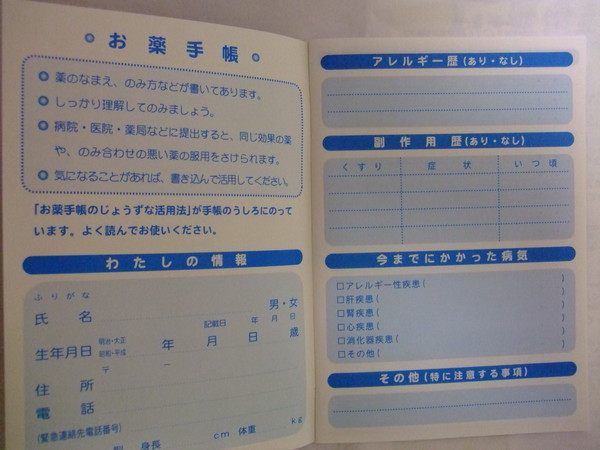 お薬手帳
薬のなまえ、のみ方などが書いてあります。
しっかり理解してのみましょう。
病院・医院・薬局などに提出すると、同じ効果の薬
や、のみ合わせの悪い薬の服用をさけられます。
気になることがあれば、書き込んで活用してください。
「お薬手帳のじょうずな活用法」が手帳のうしろにのって
います。よく読んでお使いください。
わたしの情報
ふりがな
氏名 男・女
記載日 年 月 日
生年月日 明治・大正 昭和・平成 年 月 日 歳
住所 〒 ー
電話
(緊急連絡先電話番号)
身長 cm 体重 kg
アレルギー歴(あり・なし)
副作用歴(あり・なし)
くすり 症状 いつ頃
今までにかかった病気
□アレルギー性疾患( )
□肝疾患( )
□腎疾患( )
□心疾患( )
□消化器疾患( )
□その他( )
その他(特に注意する事項)